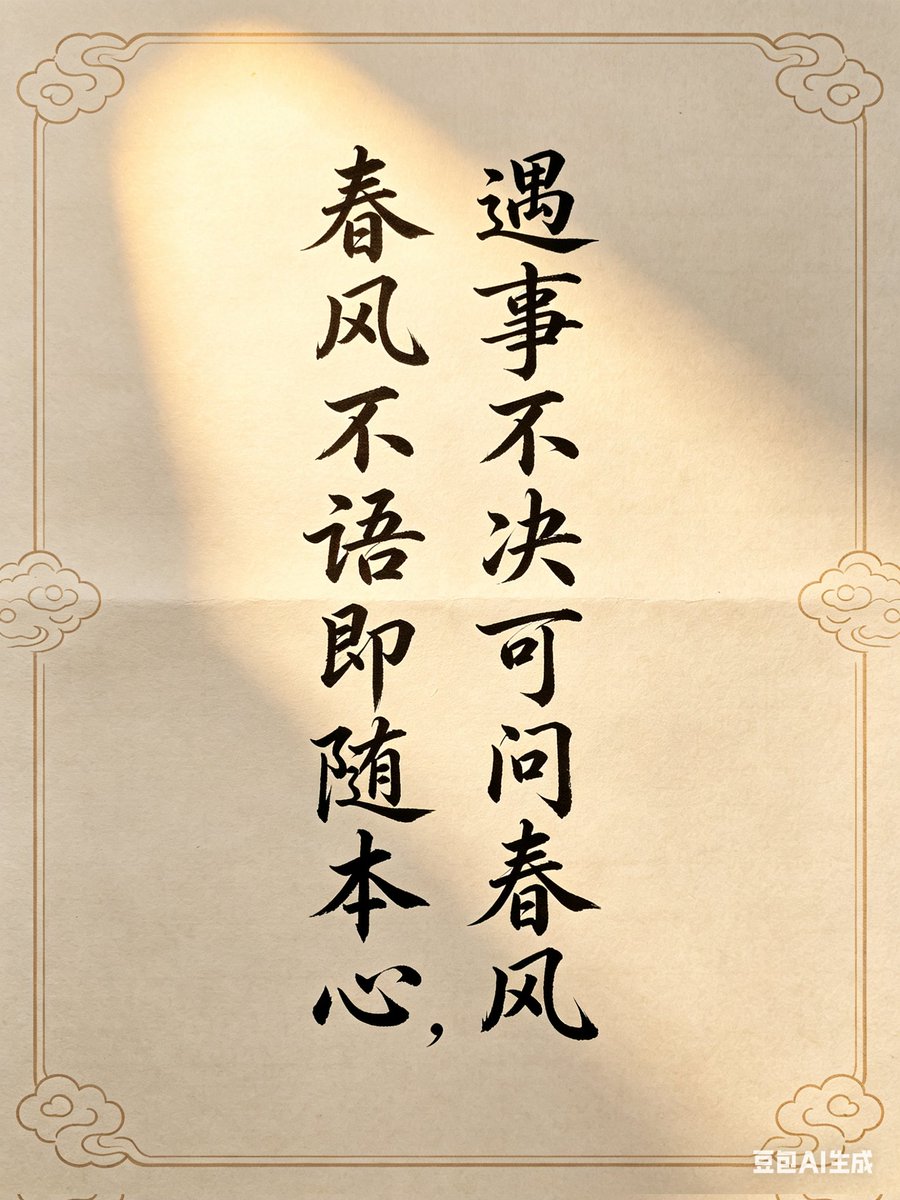 遇事不决可问春风
春风不语即随本心，
豆包AI生成